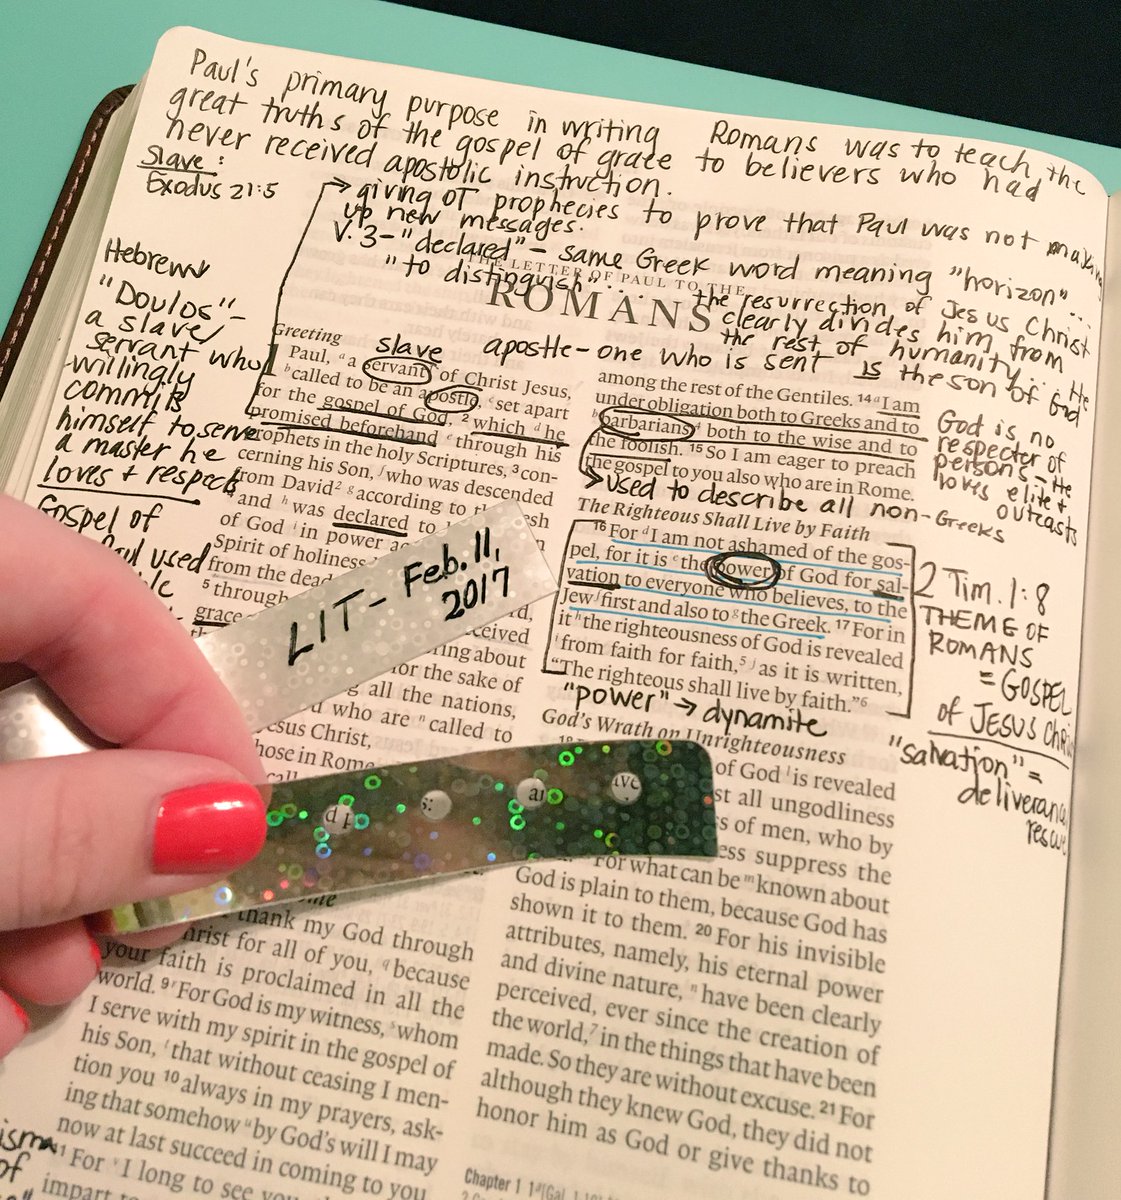 Paul's primary purpose in writing Romans was to teach the
great truths of the gospel of grace to believers who had
never received apostolic instruction.
Slave:
Exodus 21:5
giving OT prophecies to prove that Paul was not making
up new messages.
V. 3-"declared"- same Greek word meaning "horizon"...
"to distinguish"... the resurrection of Jesus Christ
clearly divides him from
the rest of humanity... He
IS the son of God
Hebrew
"Doulos"-
a slave/
servant who
willingly
commits
himself to serve
a master he
loves + respects
Gospel of
Paul used
THE LETTER OF PAUL TO THE
ROMANS
slave
apostle- one who is sent
Greeting
1 Paul, a servant of Christ Jesus,
b called to be an apostle, c set apart
for the gospel of God, 2 which d he
promised beforehand e through his
prophets in the holy Scriptures, 3 con-
cerning his Son, f who was descended
from David 2 g according to the flesh
4 and h was declared to
of God i in power
Spirit of holiness
from the dead
5 through
grace
LIT- Feb. 11,
2017
ceived
ring about
for the sake of
all the nations,
who are n called to
Jesus Christ,
those in Rome
d p
s:
ar
ive
thank my God through
Christ for all of you, q because
your faith is proclaimed in all the
world. 9 r For God is my witness, s whom
I serve with my spirit in the gospel of
his Son, t that without ceasing I men-
tion you 10 always in my prayers, ask-
ing that somehow u by God's will I may
now at last succeed in coming to you.
11 For v I long to see you
impart to
isma
of
among the rest of the Gentiles. 14 a I am
under obligation both to Greeks and to
b barbarians, both to the wise and to
the foolish. 15 So I am eager to preach
the gospel to you also who are in Rome.
used to describe all non-Greeks
God is no
respecter of
persons- He
loves elite +
outcasts
The Righteous Shall Live by Faith
16 For d I am not ashamed of the gos-
pel, for it is e the power of God for sal-
vation to everyone who believes, to the
Jew f first and also to g the Greek. 17 For in
it h the righteousness of God is revealed
i from faith for faith, 5 j as it is written,
"The righteous shall live by faith." 6
2 Tim. 1:8
THEME OF
ROMANS
= GOSPEL
of JESUS Chris
"power" → dynamite
"salvation" =
deliverance,
rescue
God's Wrath on Unrighteousness
18 of God l is revealed
st all ungodliness
ss of men, who by
ess suppress the
For what can be m known about
God is plain to them, because God has
shown it to them. 20 For his invisible
attributes, namely, his eternal power
and divine nature, n have been clearly
perceived, ever since the creation of
the world, 7 in the things that have been
made. So they are without excuse. 21 For
although they knew God, they did not
honor him as God or give thanks to
Chapter 1